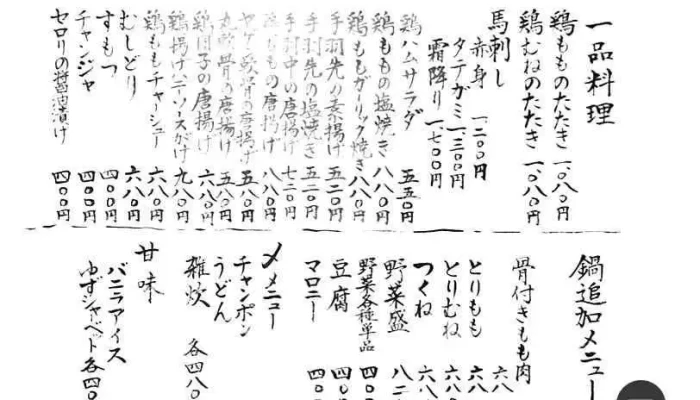 一品料理
鶏もものたたき 一、〇八〇円
鶏むねのたたき 一、〇八〇円
馬刺し
赤身 一、二〇〇円
タテガミ 一、三〇〇円
霜降り 一、七〇〇円
鶏ハムサラダ 五五〇円
鶏ももの塩焼き 八八〇円
鶏ももガーリック焼き 八八〇円
手羽先の素揚げ 五二〇円
手羽先の塩焼き 五二〇円
手羽中の唐揚げ 七二〇円
ももの唐揚げ 八八〇円
軟骨の唐揚げ 五八〇円
丸軟骨の唐揚げ 五八〇円
鶏団子の唐揚げ 六八〇円
鶏揚げハニーソースがけ 九八〇円
鶏ももチャーシュー 六八〇円
むしどり 六八〇円
すもつ 四〇〇円
チャンジャ 四〇〇円
セロリの醤油漬け 四〇〇円
鍋追加メニュー
骨付きもも肉 六八
とりもも 六八
とりむね 六八
つくね 六八
野菜盛 八二
野菜各種単品 四〇
豆腐 四〇
マロニー 四〇
〆メニュー
チャンポン
うどん
雑炊 各四八〇
甘味
バニラアイス
ゆずシャーベット 各四〇